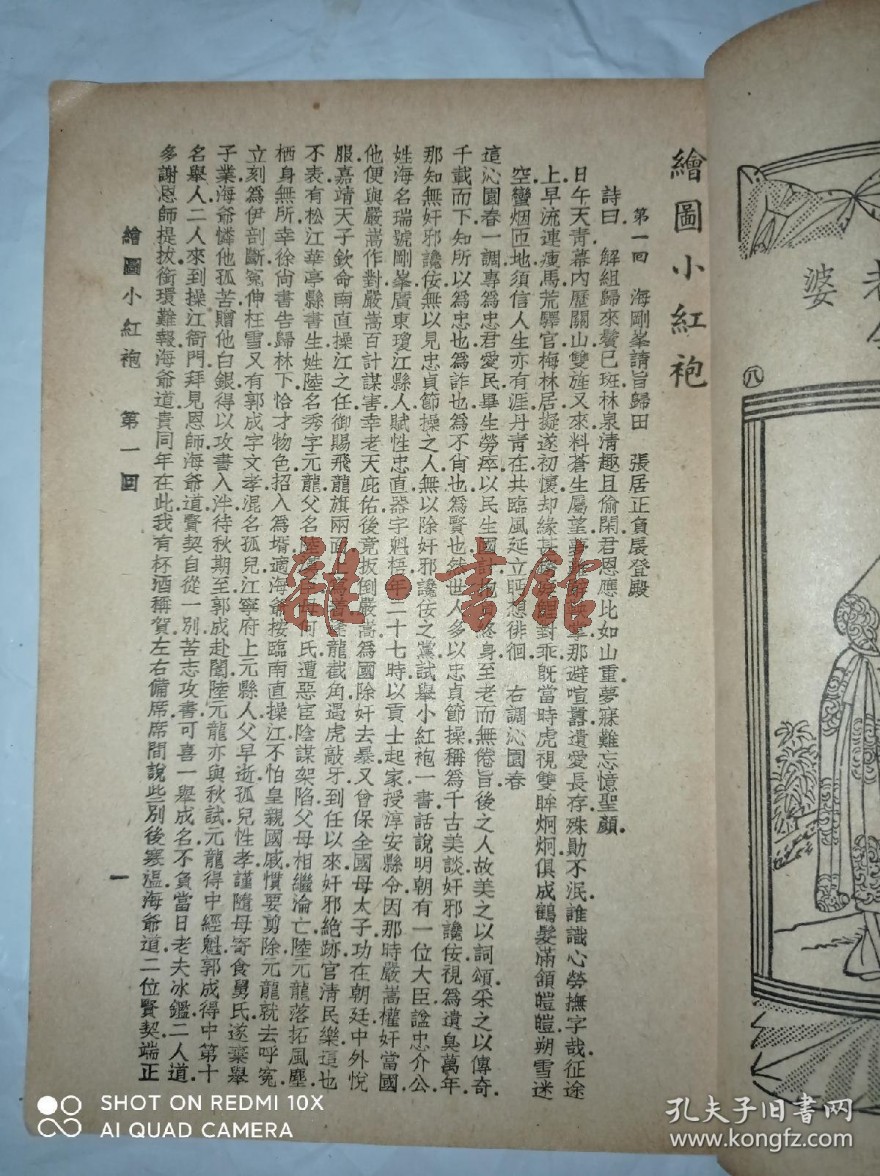 繪圖小紅袍
第一回　海剛峯請旨歸田　張居正負扆登殿
詩曰．解組歸來鬢已斑林泉清趣且偷閑君恩應比如山重夢寐難忘憶聖顏．
日午天青幕內歷關山雙旌又來料蒼生屬望那避喧囂遺愛長存殊勛不泯誰識心勞撫字哉征途
上早流連瘦馬荒驛官梅林居擬遂初懷却緣甚對乖既當時虎視雙眸炯炯俱成鶴髮滿頷皚皚朔雪迷
空蠻烟匝地須信人生亦有涯丹青在共臨風延立眄想徘徊．右調沁園春
這沁園春一調專為忠君愛民畢生勞瘁以民生國終身至老而無倦旨後之人故美之以詞頌采之以傳奇
千載而下知所以為忠也為詐也為不肖也為賢也然世人多以忠貞節操稱為千古美談奸邪讒佞視為遺臭萬年
那知無奸邪讒佞無以見忠貞節操之人無以除奸邪讒佞之黨試舉小紅袍一書話說明朝有一位大臣諡忠介公
姓海名瑞號剛峯廣東瓊江縣人賦性忠直器字魁梧年二十七時以貢士起家授淳安縣令因那時嚴嵩權奸當國
他便與嚴嵩作對嚴嵩百計謀害幸老天庇佑後竟扳倒嚴嵩為國除奸去暴又曾保全國母太子功在朝廷中外悅
服嘉靖天子欽命南直操江之任御賜飛龍旗兩面龍截角遇虎敲牙到任以來奸邪絕跡官清民樂這也
不表有松江華亭縣書生姓陸名秀字元龍父名陸何氏遭惡宦陰謀架陷父母相繼淪亡陸元龍落拓風塵
栖身無所幸徐尚書告歸林下恰才物色招入為壻適海爺按臨南直操江不怕皇親國戚慣要剪除元龍就去呼冤
立刻為伊剖斷冤伸枉雪又有郭成字文孝混名孤兒江寧府上元縣人父早逝孤兒性孝謹隨母寄食舅氏遂棄舉
子業海爺憐他孤苦贈他白銀得以攻書入泮待秋期至郭成赴闈陸元龍亦與秋試元龍得中經魁郭成得中第十
名舉人二人來到操江衙門拜見恩師海爺道賢契自從一別苦志攻書可喜一舉成名不負當日老夫冰鑑二人道
多謝恩師提拔銜環難報海爺道貴同年在此我有杯酒稱賀左右備席席間說些別後寒溫海爺道二位賢契端正
繪圖小紅袍　第一回　一
婆
八
雜·書館
SHOT ON REDMI 10X
AI QUAD CAMERA
孔夫子旧书网
www.kongfz.com